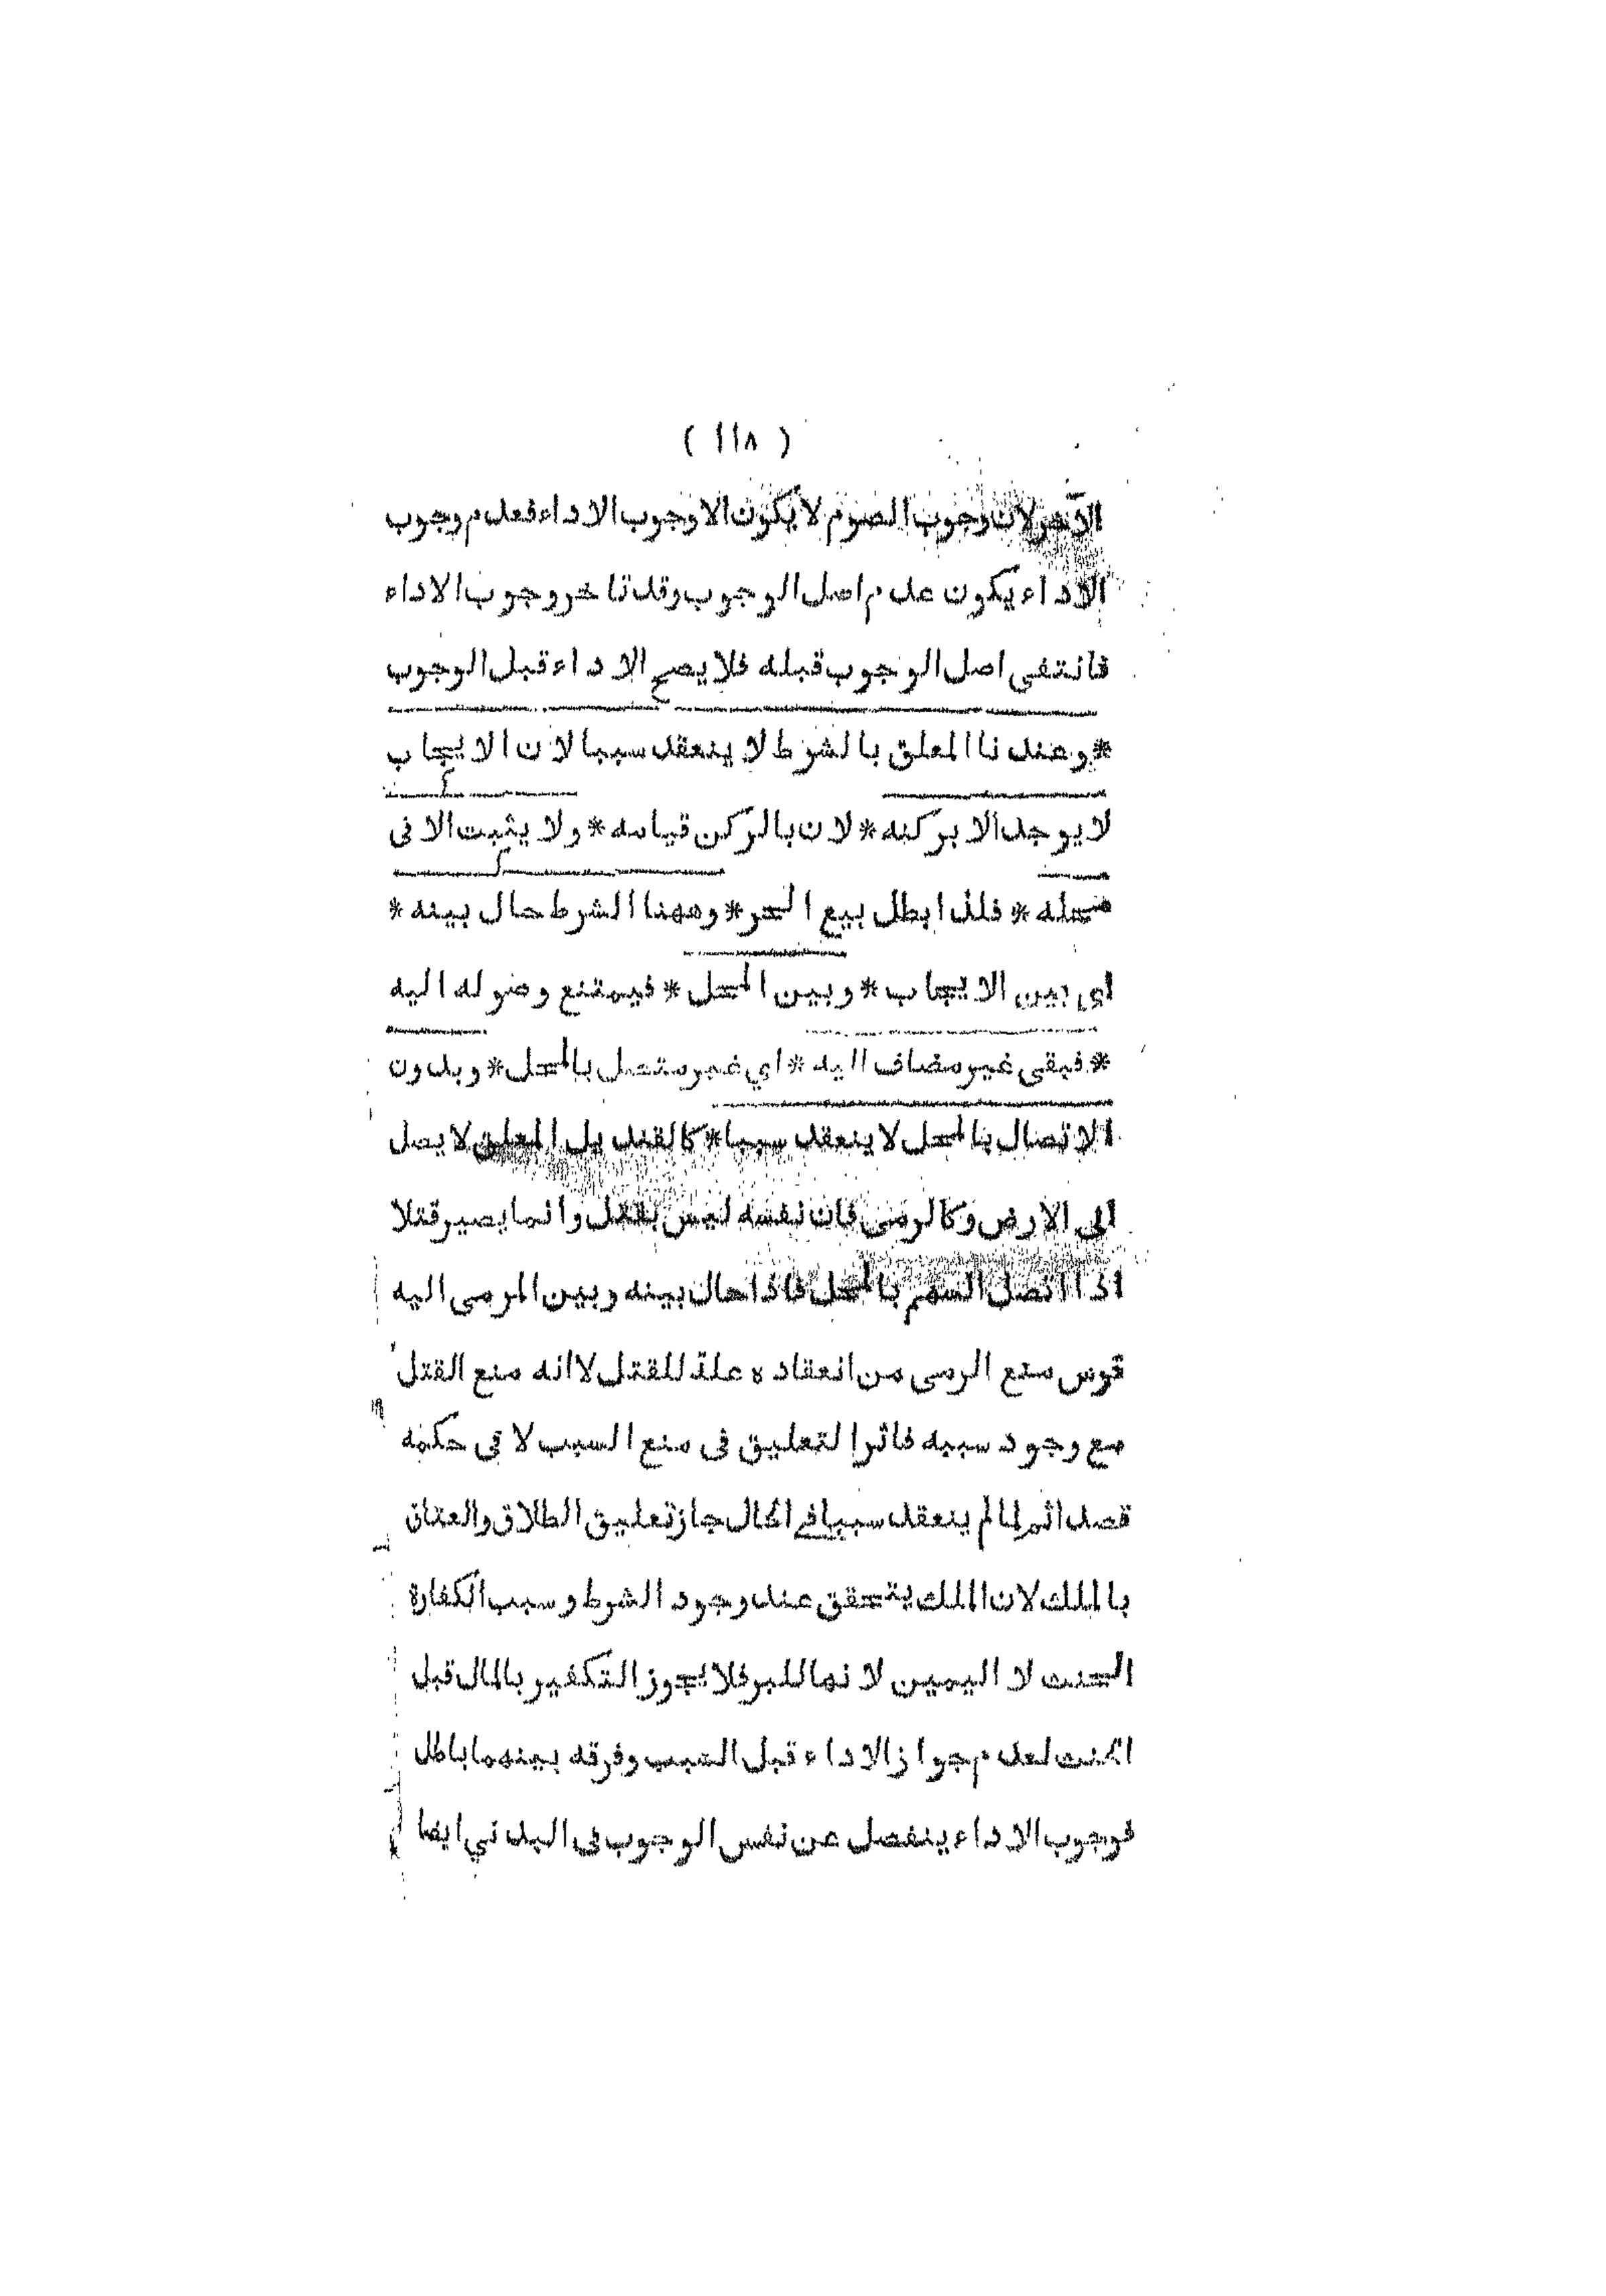 ( ١١٨ )
الآخر لان وجوب الصوم لا يكون الا وجوب الاداء فعدم وجوب
الاداء يكون عدم اصل الوجوب وقد تاخر وجوب الاداء
فانتفى اصل الوجوب قبله فلا يصح الاداء قبل الوجوب
* وعندنا المعلق بالشرط لا ينعقد سببا لان الايجاب
لا يوجد الا بركنه * لان بالركن قيامه * ولا يثبت الا فى
محله * فلذا بطل بيع الحر * وههنا الشرط حال بينه *
اي بين الايجاب * وبين المحل * فيمتنع وصوله اليه
* فبقى غير مضاف اليه * اي غير متصل بالمحل * وبدون
الاتصال بالمحل لا ينعقد سببا * كالقنديل المعلق لا يصل
الى الارض وكالرمى فان نفسه ليس بقتل وانما يصير قتلا
اذا اتصل السهم بالمحل فاذا حال بينه وبين المرمى اليه
قوس منع الرمى من انعقاده علة للقتل لا انه منع القتل
مع وجود سببه فاثر التعليق فى منع السبب لا فى حكمه
قصد اثم لما لم ينعقد سببا فے الحال جاز تعليق الطلاق والعتاق
بالملك لان الملك يتحقق عند وجود الشرط وسبب الكفارة
الحنث لا اليمين لا نها للبر فلا يجوز التكفير بالمال قبل
الحنث لعدم جواز الاداء قبل السبب وفرقه بينهما باطل
فوجوب الاداء ينفصل عن نفس الوجوب فى البدني ايضا